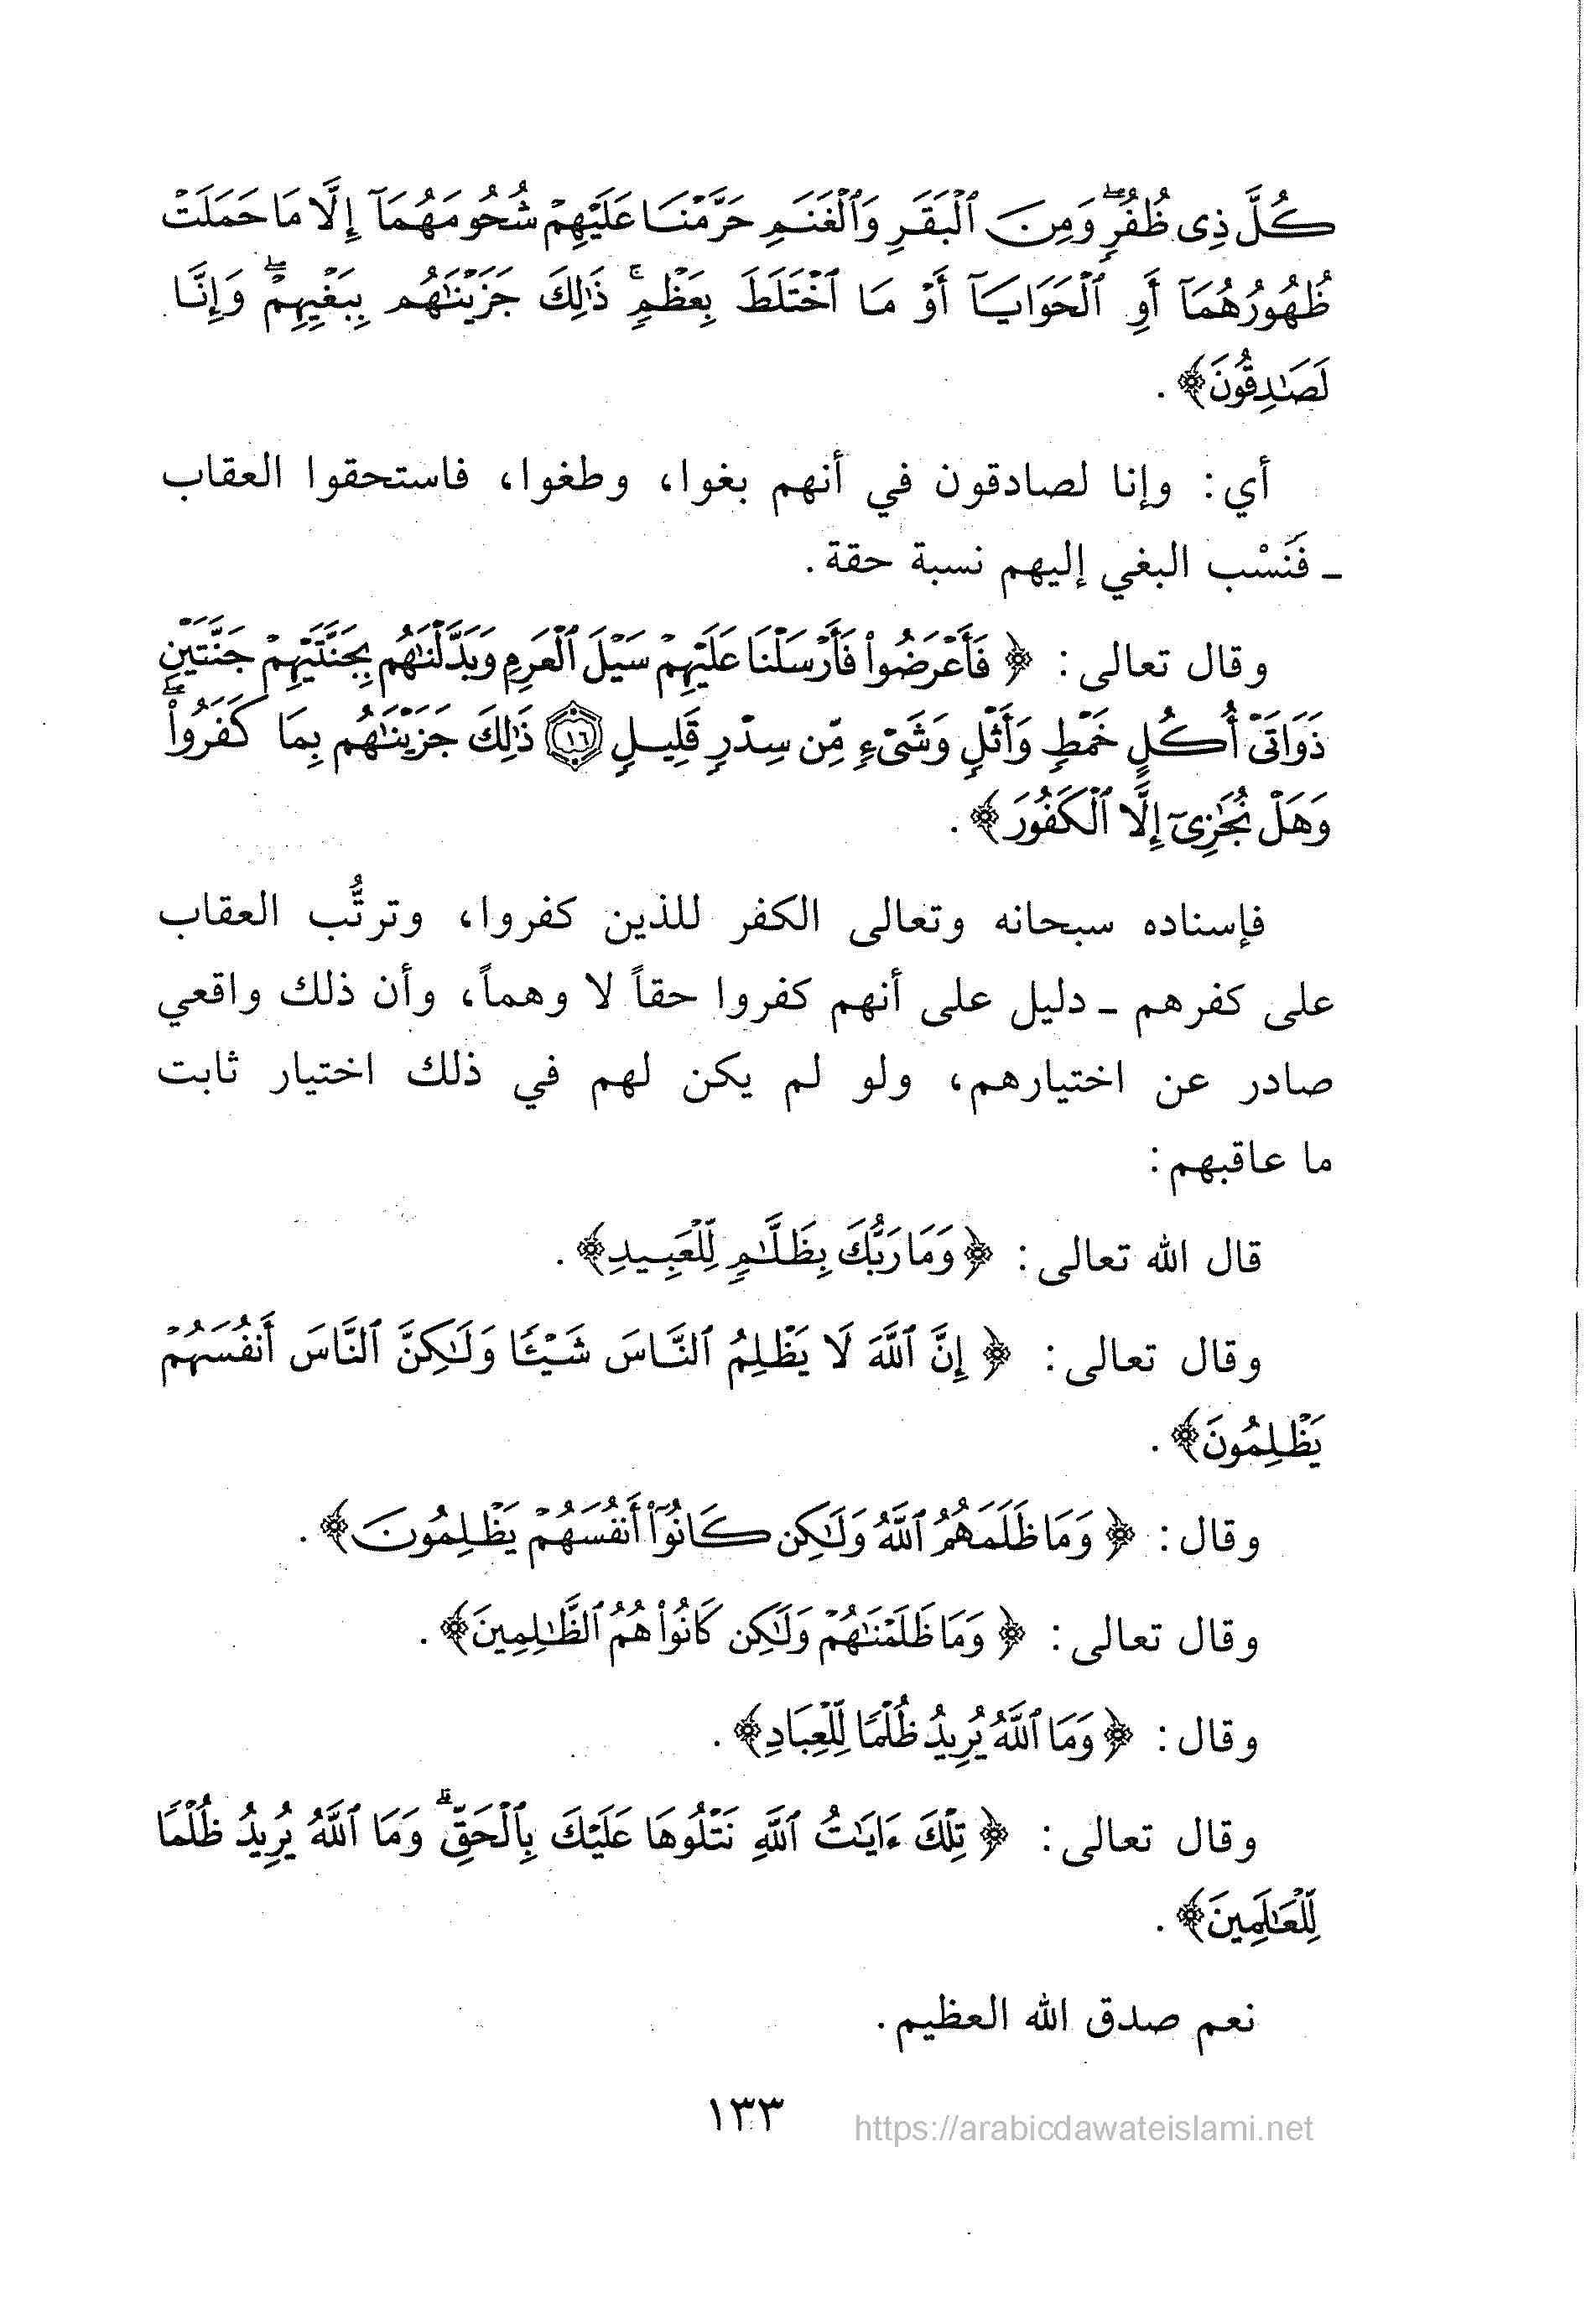 كُلَّ ذِى ظُفُرٍۖ وَمِنَ ٱلْبَقَرِ وَٱلْغَنَمِ حَرَّمْنَا عَلَيْهِمْ شُحُومَهُمَآ إِلَّا مَا حَمَلَتْ
ظُهُورُهُمَآ أَوِ ٱلْحَوَايَآ أَوْ مَا ٱخْتَلَطَ بِعَظْمٍۚ ذَٰلِكَ جَزَيْنَٰهُم بِبَغْيِهِمْۖ وَإِنَّا
لَصَٰدِقُونَ﴾.
أي: وإنا لصادقون في أنهم بغوا، وطغوا، فاستحقوا العقاب
ـ فَنَسْب البغي إليهم نسبة حقة.
وقال تعالى: ﴿فَأَعْرَضُوا۟ فَأَرْسَلْنَا عَلَيْهِمْ سَيْلَ ٱلْعَرِمِ وَبَدَّلْنَٰهُم بِجَنَّتَيْهِمْ جَنَّتَيْنِ
ذَوَاتَىْ أُكُلٍ خَمْطٍ وَأَثْلٍ وَشَىْءٍ مِّن سِدْرٍ قَلِيلٍ ١٦ ذَٰلِكَ جَزَيْنَٰهُم بِمَا كَفَرُوا۟ۖ
وَهَلْ نُجَٰزِىٓ إِلَّا ٱلْكَفُورَ﴾.
فإسناده سبحانه وتعالى الكفر للذين كفروا، وترتُّب العقاب
على كفرهم ـ دليل على أنهم كفروا حقاً لا وهماً، وأن ذلك واقعي
صادر عن اختيارهم، ولو لم يكن لهم في ذلك اختيار ثابت
ما عاقبهم:
قال الله تعالى: ﴿وَمَا رَبُّكَ بِظَلَّٰمٍ لِّلْعَبِيدِ﴾.
وقال تعالى: ﴿إِنَّ ٱللَّهَ لَا يَظْلِمُ ٱلنَّاسَ شَيْـًٔا وَلَٰكِنَّ ٱلنَّاسَ أَنفُسَهُمْ
يَظْلِمُونَ﴾.
وقال: ﴿وَمَا ظَلَمَهُمُ ٱللَّهُ وَلَٰكِن كَانُوٓا۟ أَنفُسَهُمْ يَظْلِمُونَ﴾.
وقال تعالى: ﴿وَمَا ظَلَمْنَٰهُمْ وَلَٰكِن كَانُوا۟ هُمُ ٱلظَّٰلِمِينَ﴾.
وقال: ﴿وَمَا ٱللَّهُ يُرِيدُ ظُلْمًا لِّلْعِبَادِ﴾.
وقال تعالى: ﴿تِلْكَ ءَايَٰتُ ٱللَّهِ نَتْلُوهَا عَلَيْكَ بِٱلْحَقِّۗ وَمَا ٱللَّهُ يُرِيدُ ظُلْمًا
لِّلْعَٰلَمِينَ﴾.
نعم صدق الله العظيم.
١٣٣
https://arabicdawateislami.net